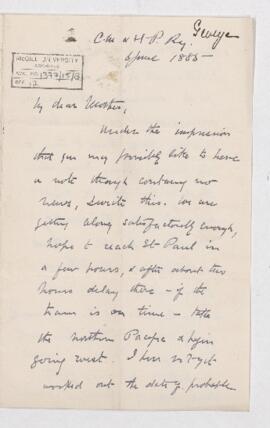 George
C. M. & St P. Ry.
June 1885
McGILL UNIVERSITY
ARCHIVES
ACC. NO. 1377/15/2
REF. 12
My dear Mother,
Under the impression
that you may possibly like to have
a note though containing no
news, I write this. We are
getting along satisfactorily enough,
hope to reach St Paul in
a few hours, & after about two
hours delay there – if the
train is on time – take
the Northern Pacific & begin
going west. I have not yet
worked out the date of probable